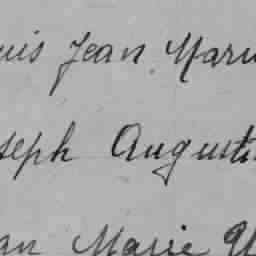 uis Jean Marie
seph Augustin
an Marie